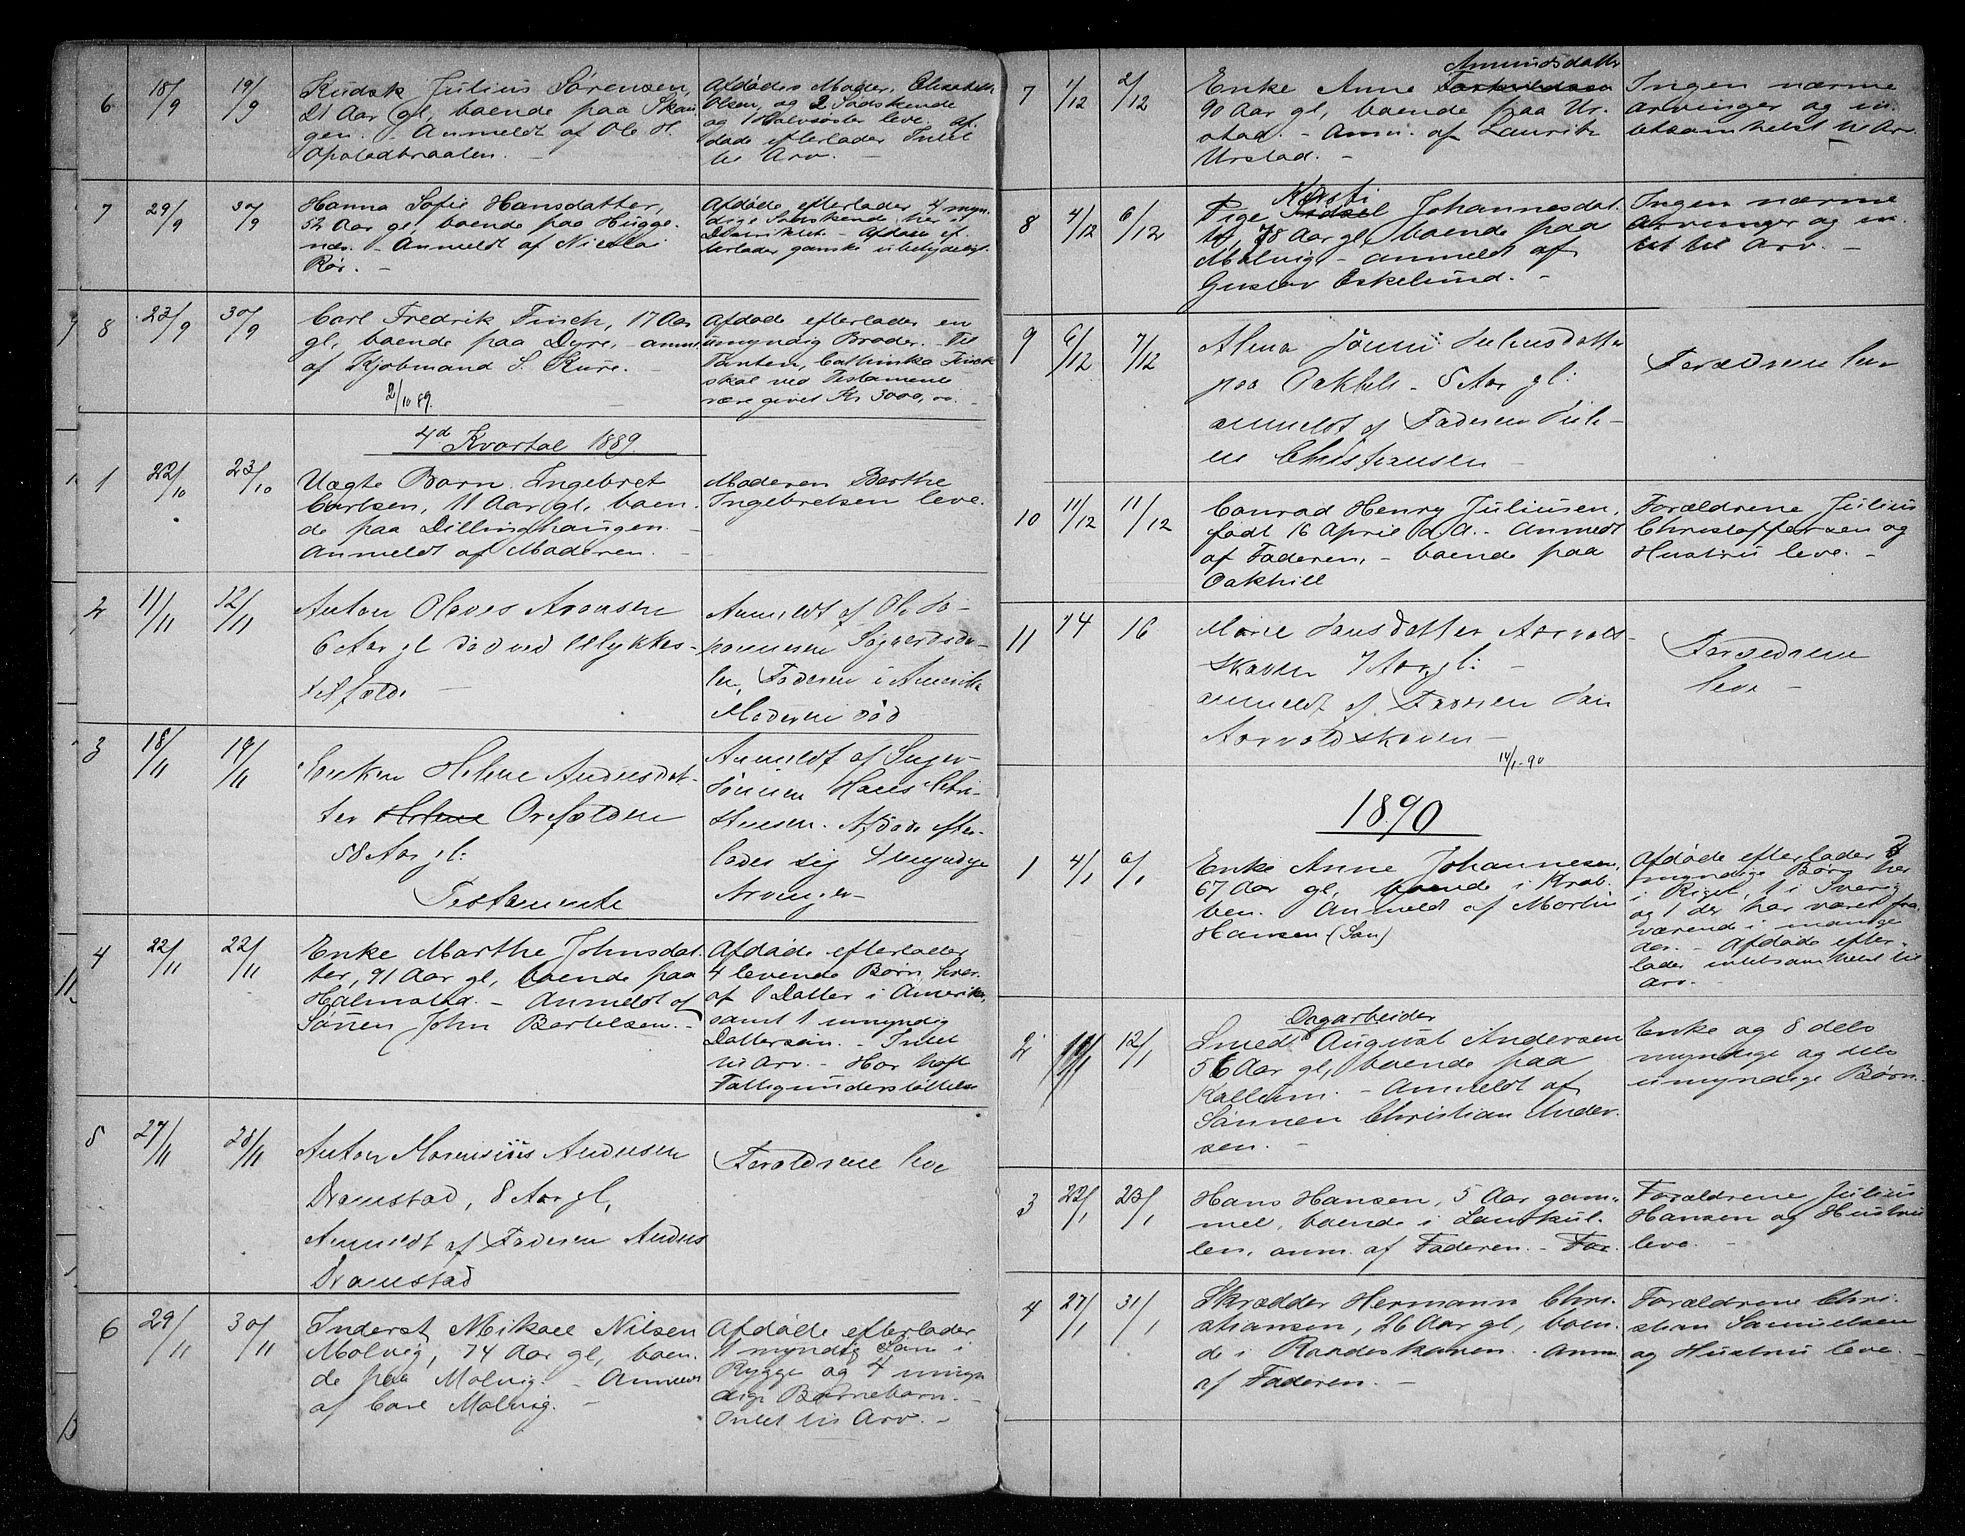 6 18/9 19/9
Kudsk Julius Sørensen,
21 Aar gl, boende paa Skau
gen. - Anmeldt af Ole H.
Afdødes Moder, Elisabeth
Olsen, og 2 Sødskende
og 1 Halvsøster leve. Af
døde efterlader Intet
til Arv. -
7 29/9 30/9
Hanna Sofie Hansdatter,
52 Aar gl, boende paa Hugge-
næs. - Anmeldt af Nicolai
Rør. -
Afdøde efterlader 4 myn
dige Sødskende her i
Distriktet - Afdøde ef
terlader ganske ubetydeligt.
8 23/9 30/9
Carl Fredrik Finch, 17 Aar
gl, boende paa Dyre, - anm.
af Kjøbmand S. Kure. -
2/10 89.
Afdøde efterlader en
umyndig Broder. - Til
Tanten, Cathinka Finck
skal ved Testamente
være givet Kr 3000,00. -
4d Kvartal 1889.
1 22/10 23/10
Uægte Barn Ingebret
Carlsen, 11 Aar gl, boen
de paa Dillinghaugen. -
Anmeldt af Moderen. -
Moderen Berthe
Ingebretsen leve.
2 11/11 12/11
Anton Olaves Aronsen
6 Aar gl død ved Ulykkes-
tilfælde -
Anmeldt af Ole Jo-
hannesen
Faderen i Amerika
Moderen død
3 18/11 19/11
Enken Helene Andersdat-
ter Helene Orefolden
58 Aar gl:
Testamente
Anmeldt af Sviger-
sønnen Hans Chri-
stensen. Afdøde efter-
lader sig 4 myndige
Arvinger -
4 22/11 22/11
Enke Marthe Johnsdat
ter, 91 Aar gl, boende paa
Halmstad. - Anmeldt af
Sønen John Bertelsen. -
Afdøde efterlader
4 levende Børn hvor
af 1 Datter i Amerika,
samt 1 umyndig
Dattersøn. - Intet
til Arv. - Har havt
Fattigunderstøttelse
5 27/11 28/11
Anton Marensius Andersen
Dramstad, 8 Aar gl,
Anmeldt af Faderen Anders
Dramstad
Forældrene leve
6 29/11 30/11
Inderst Mikael Nilsen
Molvig, 74 Aar gl, boen
de paa Molvig. - Anmeldt
af Carl Molvig. -
Afdøde efterlader
1 myndig Søn i
Rygge og 4 umyn
dige Børnebørn. -
Intet til Arv. -
7 1/12 2/12
Amundsdatter
Enke Anne Torkildsen
90 Aar gl, boende paa Ur-
stad. - Anm. af Laurits
Urstad. -
Ingen nærme
arvinger og in
tetsomhelst til Arv.
8 4/12 6/12
Kirsti
Pige Johannesdat
ter, 78 Aar gl, boende paa
Molvig - anmeldt af
Gustav Eskelund. -
Ingen nærme
Arvinger og in
tet til Arv. -
9 6/12 7/12
Alma Jonni Juliusdatter
paa Oakhill - 5 Aar gl:
anmeldt af Faderen Juli-
us Christiansen -
Forældrene leve
10 11/12 11/12
Conrad Henry Juliusen,
født 16 April d.A. - Anmeldt
af Faderen, - boende paa
Oakhill
Forældrene Julius
Christoffersen og
Hustru leve. -
11 14 16
Marie Jansdatter Aarvolds-
skoven 7 Aar gl: -
anmeldt af Faderen Jan
Aarvoldskoven -
14/1-90
Forældrene
leve -
1890
1 4/1 6/1
Enke Anne Johannesen,
67 Aar gl, boende i Krab-
ben. Anmeldt af Martin
Hansen (Søn)
Afdøde efterlader 3
myndige Børn her
i Riget, 1 i Sverig
og 1 der har været fra
værende i mange
Aar. - Afdøde efter-
lader intetsomhelst til
Arv. -
2 10/1 12/1
Dagarbeider
Smed August Andersen
56 Aar gl, boende paa
Kallum. - Anmeldt af
Sønnen Christian Ander-
sen. -
Enke og 8 dels
myndige og dels
umyndige Børn.
3 22/1 23/1
Hans Hansen, 5 Aar gam-
mel, boende i Lanskul-
len, anm. af Faderen. - For
Forældrene Julius
Hansen og Hustru
leve. -
4 27/1 31/1
Skrædder Hermann Chri-
stiansen, 26 Aar gl, boen-
de i Raadeskoven. Anm
af Faderen. -
Forældrene Chri-
stian Samuelsen
og Hustru leve. -